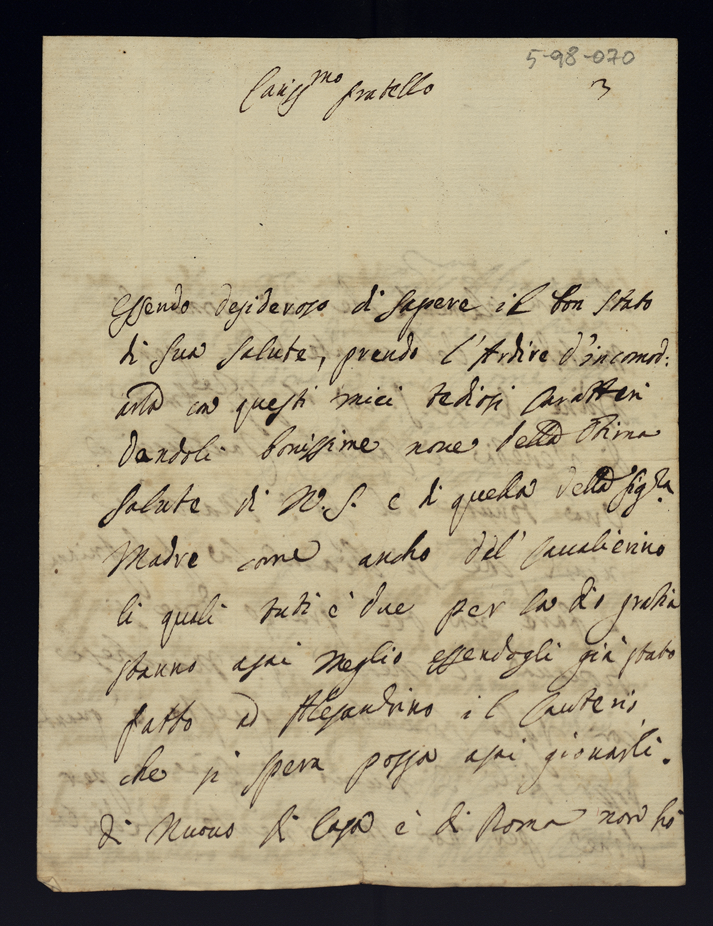 5-98-070
Cariss.mo fratello
3
Essendo desideroso di sapere il bon stato
di sua salute, prendo l'Ardire d'incomod:
arla con questi miei tediosi caratteri
dandoli bonissime nove della
salute di N. S. e di quella della Sig.ra
Madre come ancho del' Cavalierino
li quali tuti è due per la dio gratia
stanno assai meglio essendogli già stato
fatto ad Alesandrino il Cauterio,
che si spera possa assai giovarli.
di Nuovo di Casa è di Roma non hò